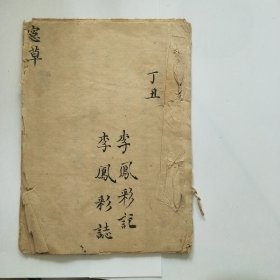 丁丑
李鳳彩記
李鳳彩誌
窓草